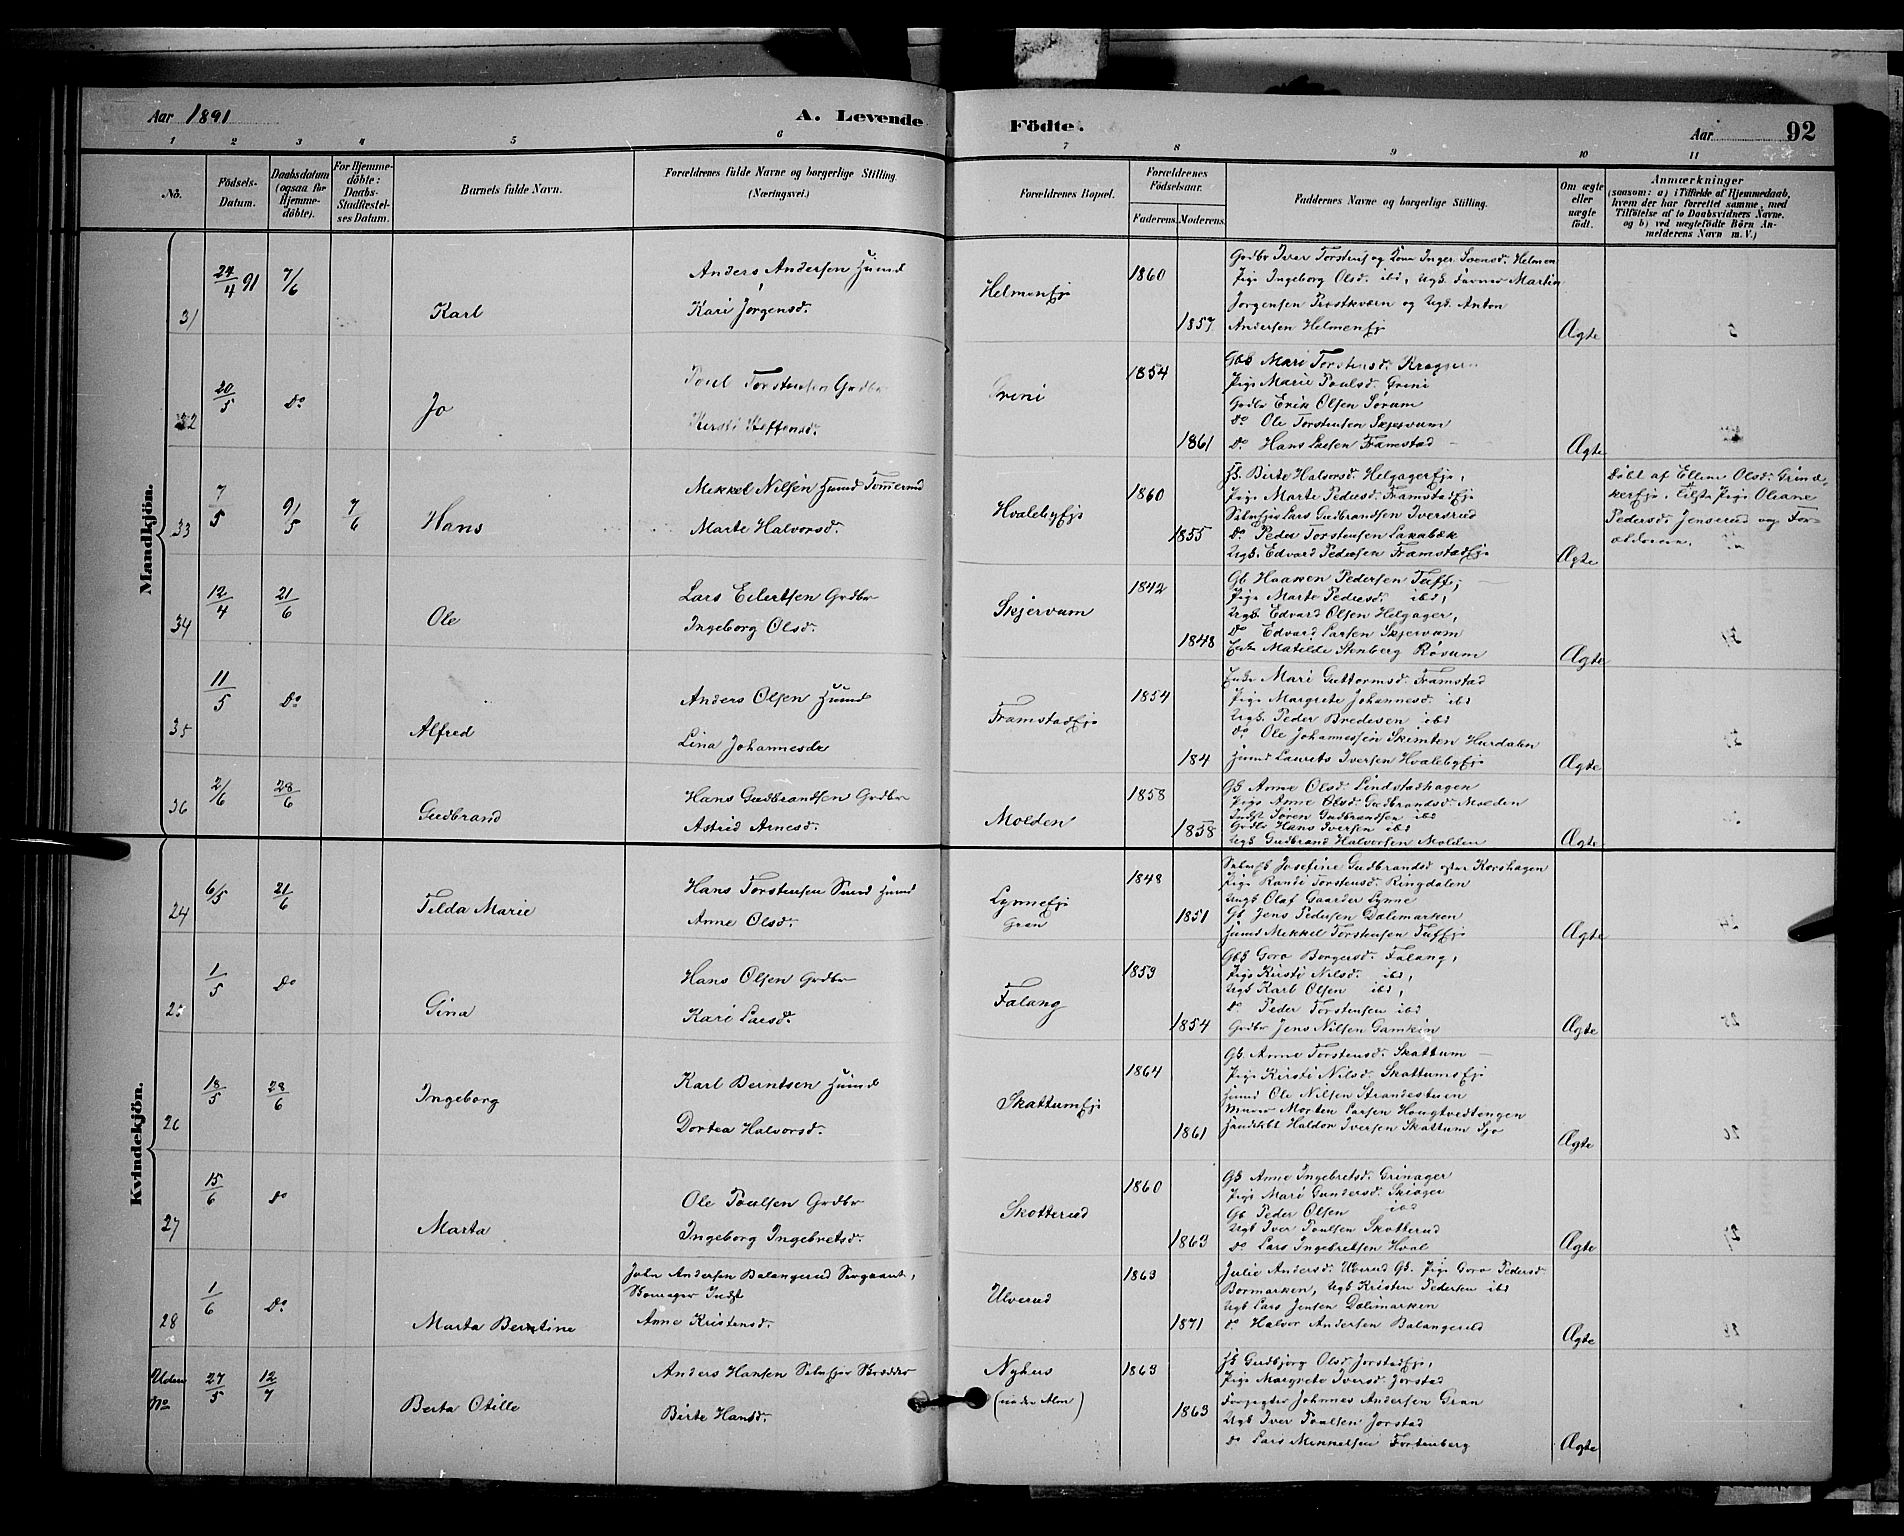 Aar 1891
A. Levende Födte.
Aar 92
1 2 3 4 5 6 7 8 9 10 11
No.
Födsels-Datum.
Daabsdatum (ogsaa for Hjemmedöbte).
For Hjemmedöbte: Daabs-Stadfæstelses Datum.
Barnets fulde Navn.
Forældrenes fulde Navne og borgerlige Stilling (Næringsvei.)
Forældrenes Bopæl.
Forældrenes Födselsaar.
Faderens. Moderens.
Faddernes Navne og borgerlige Stilling.
Om ægte eller uægte födt.
Anmærkninger
(saasom: a) i Tilfælde af Hjemmedaab, hvem der har forrettet samme, med Tilföielse af to Daabsvidners Navne. og b) ved uægtefödte Börn Anmelderens Navn m. V.)
Mandkjön.
31 24/4 91 7/6 Karl
Anders Andersen Husmd
Kari Jörgensd.
Helmenejе 1860 1857
Grdbr Iver Torstens og Kone Inger Svensd. Helmen
Pige Ingeborg Olsd. ibd, Ugk. Martin
Jörgensen Prestkværn og Ugk. Anton
Andersen Helmenej
Ægte
32 20/5 Do Jo
Poul Torstensen Grdbr
Kirsti Steffensd.
Grini 1854 1861
Gbk Mari Torstensd.
Pige Marie Poulsd. Grini
Grdbr Erik Olsen Sörum
Do Ole Torstensen Skjervum
Do Hans Larsen Framstad
Ægte
33 7/5 9/5 7/6 Hans
Mikkel Nilsen Husmd
Marte Halvorsd.
Hvalebyej 1860 1855
Birte Halvorsd. Helgagerej,
Pige Marte Pedersd. Framstadej
Lars Gudbrandsen Iversrud
Do Peder Torstensen
Ugk. Edvard Pedersen Framstadej
Ægte
Döbt af Ellene Olsd.
Pige Oliane
Pedersd. Jenserud og For-
ældrene.
34 12/4 21/6 Ole
Lars Eilertsen Grdbr
Ingeborg Olsd.
Skjervum 1842 1848
Gb Haagen Pedersen
Pige Marte Pedersd. ibd,
Ugk. Edvard Olsen Helgager,
Do Edvard Larsen Skjervum
Enke Matilde Stenberg Rövum
Ægte
35 11/5 Do Alfred
Anders Olsen Husmd
Lina Johannesdr
Framstadej 1854 184
Enke Mari Guttormsd. Framstad
Pige Margrete Johannesd. ibd
Ugk. Peder Bredesen ibd
Do Ole Johannessen Skimten Hurdalen
Husmd Laurits Iversen Hvalebyej
Ægte
36 2/6 28/6 Gudbrand
Hans Gudbrandsen Grdbr
Astrid Arnesd.
Molden 1858 1858
Gk Anne Olsd. Lindstadhagen
Pige Anne Olsd. Gudbrandsd. Molden
Indst Sören Gudbrandsen ibd
Grdbr Hans Iversen ibd
Ugk Gudbrand Halvorsen Molden
Ægte
Kvindekjön.
24 6/5 21/6 Tilda Marie
Hans Torstensen Smed Husmd
Anne Olsd.
Lynneej Gran 1848 1851
Josefine Gudbrandsd. Korshagen
Pige Randi Torstensd. Ringdalen
Ungk Olaf Gaarder Lynne
Gb Jens Pedersen Dælimarken
Husmd Mikkel Torstensen
Ægte
25 1/5 Do Gina
Hans Olsen Grdbr
Kari Larsd.
Falang 1853 1854
Gbk Goro Borgersd. Falang,
Pige Kirsti Nilsd. ibd,
Ugk Karl Olsen ibd,
Do Peder Torstensen ibd
Grdbr Jens Nilsen Gamkin
Ægte
26 18/5 28/6 Ingeborg
Karl Berntsen Husmd
Dortea Halvorsd.
Skattumej 1864 1861
Gk. Anne Torstensd. Skattum
Pige Kirsti Nilsd. Skattumsej
Husmd Ole Nilsen Strandestuen
Morten Larsen Hougtvedtengen
Handelsbt Haldor Iversen Skattum Sjo
Ægte
27 15/6 Do Marta
Ole Poulsen Grdbr
Ingeborg Ingebretsd.
Skotterud 1860 1863
Gk Anne Ingebretsd. Grinager
Pige Mari Gundersd. Skiager
Gb Peder Olsen ibd
Ugk Iver Poulsen Skotterud
Do Lars Ingebretsen Hval
Ægte
28 1/6 Do Marta Berntine
John Andersen Balangerud Sergeant,
Skomager Indst
Anne Kristensd.
Ulverud 1863 1871
Julie Andersd. Ulverud Gk. Pige Goro Pedersd.
Bormarken, Ugk Kristen Pedersen ibd
Ugk Lars Jensen Dælimarken
Do Halvor Andersen Balangerud
Ægte
Uden No 27/5 12/7 Berta Otilie
Anders Hansen Selvejer Skrædder
Birte Hansd.
Nyhus (under Alm) 1863 1863
Gudbjorg Olsd. Jorstadej,
Pige Margrete Iversd. Jorstad
Forpagter Johannes Andersen Gran
Ugk Iver Poulsen Jorstad
Do Lars Mikkelsen Fortenberg
Ægte